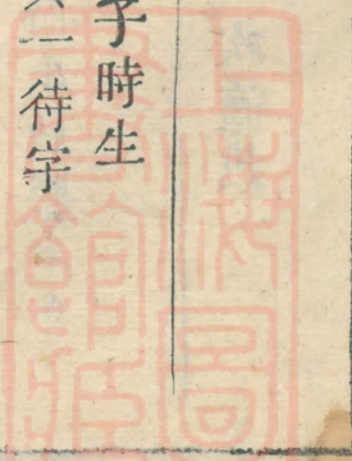 子時生
一待字
上海圖
書館藏